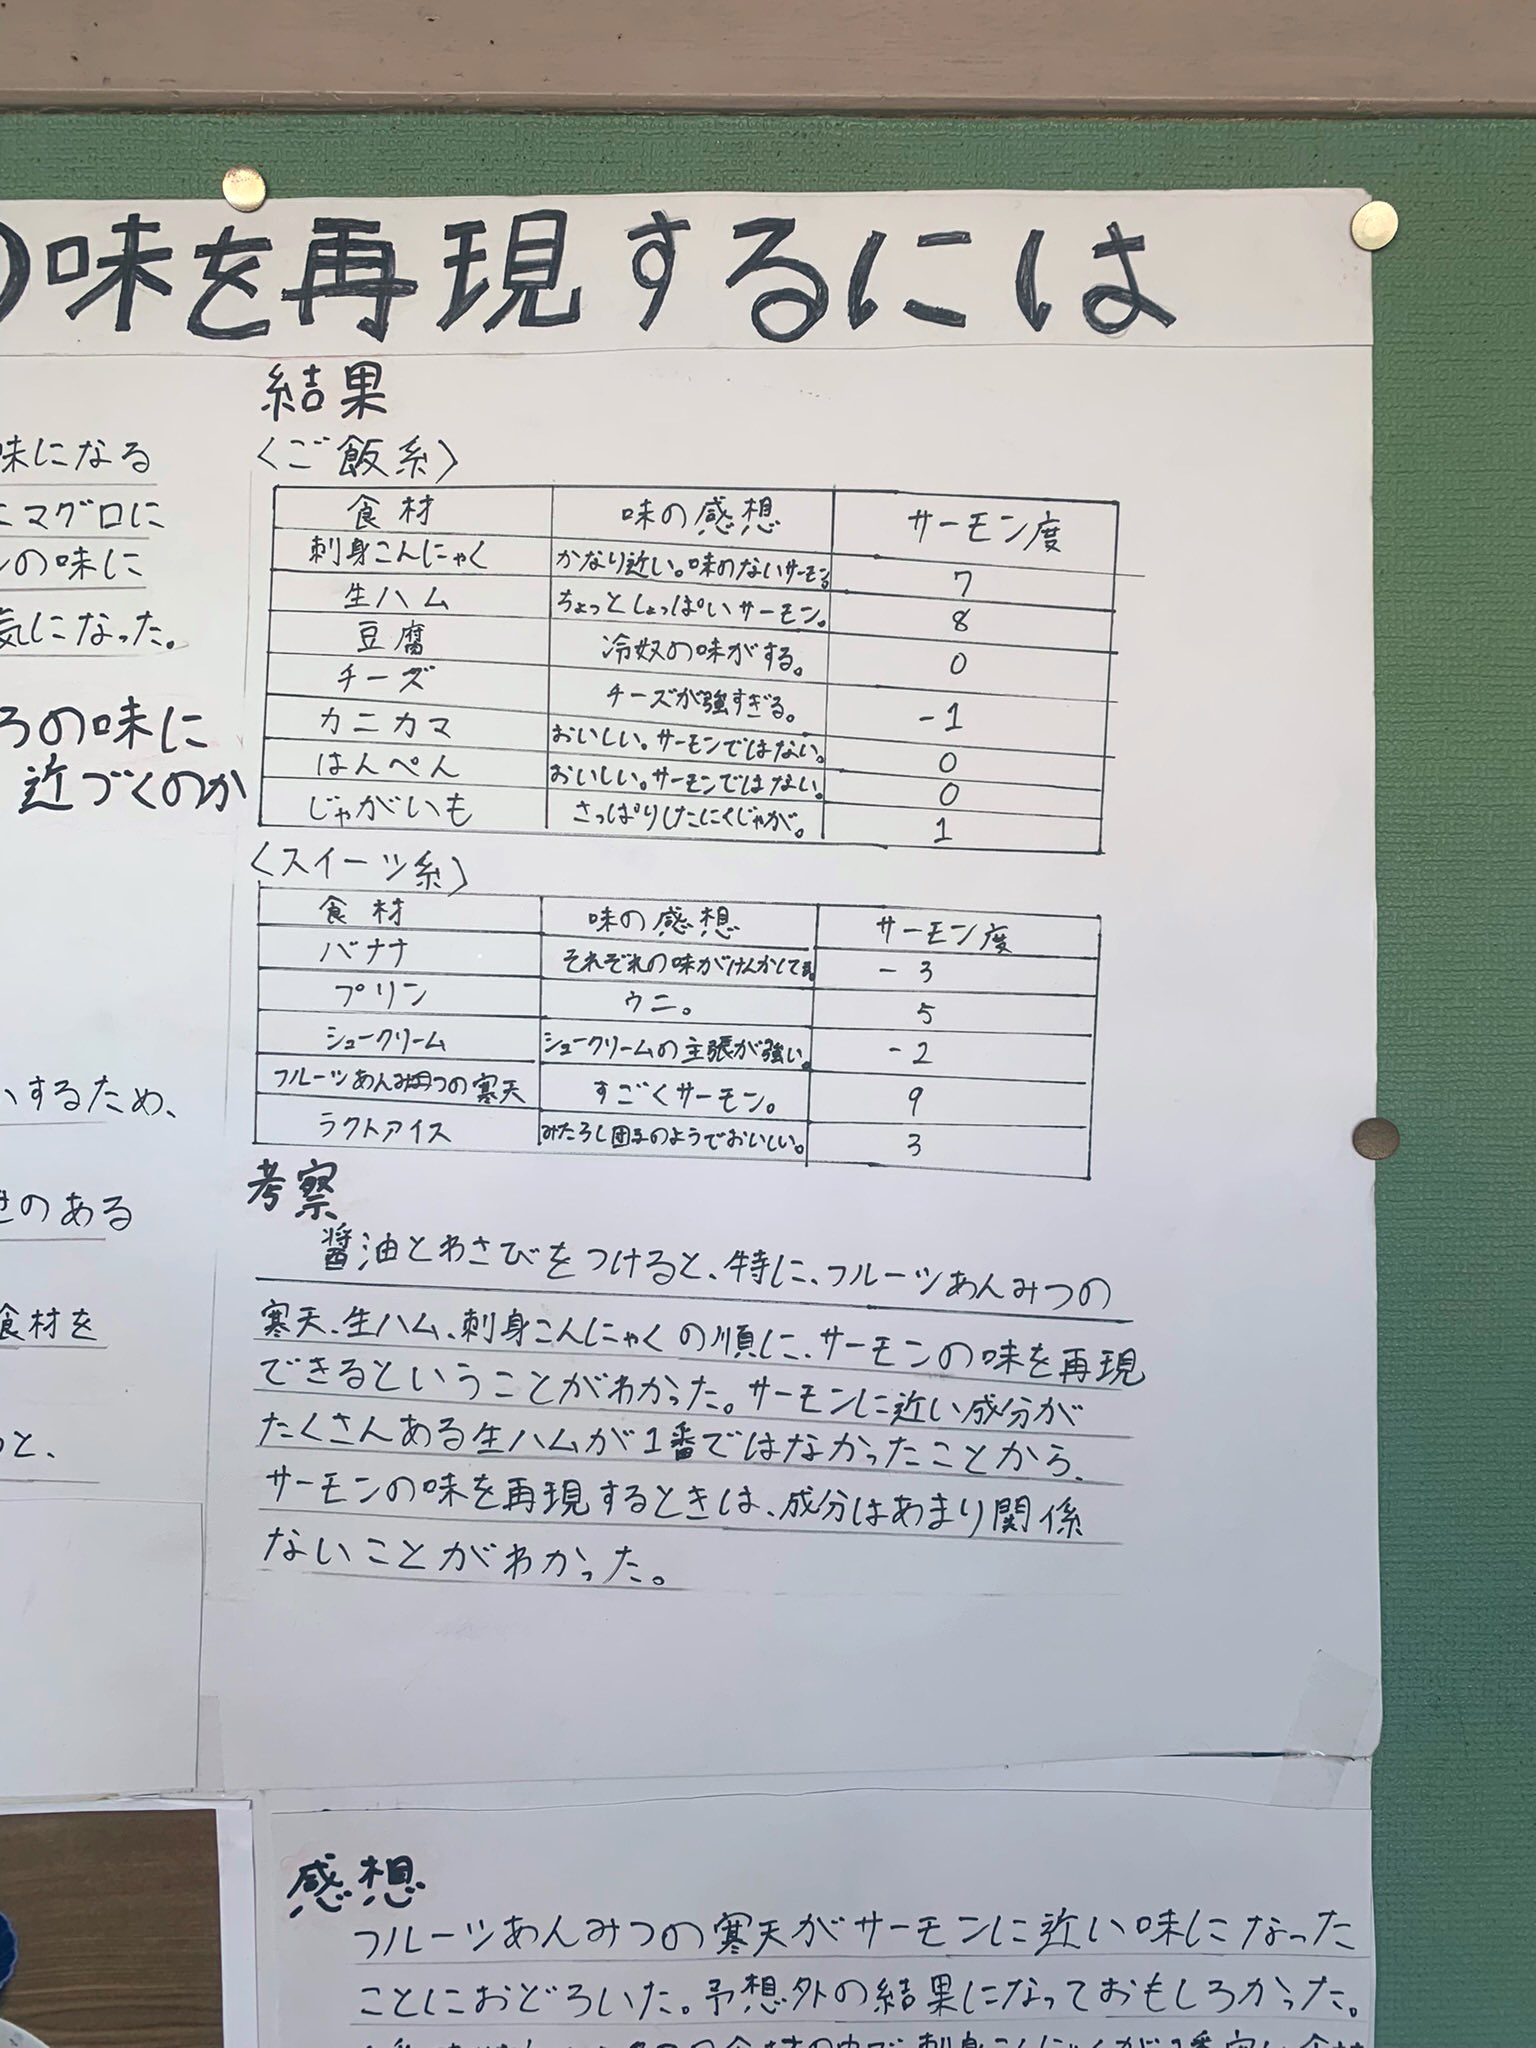 の味を再現するには
味になる
マグロに
の味に
気になった。
ろの味に
近づくのか
いするため、
のある
食材を
と、
結果
〈ご飯系〉
食材 味の感想 サーモン度
刺身こんにゃく かなり近い。味のないサーモン。 7
生ハム ちょっとしょっぱいサーモン。 8
豆腐 冷奴の味がする。 0
チーズ チーズが強すぎる。 -1
カニカマ おいしい。サーモンではない。 0
はんぺん おいしい。サーモンではない。 0
じゃがいも さっぱりしたにくじゃが。 1
〈スイーツ系〉
食材 味の感想 サーモン度
バナナ それぞれの味がけんかしてる。 -3
プリン ウニ。 5
シュークリーム シュークリームの主張が強い。 -2
フルーツあんみつの寒天 すごくサーモン。 9
ラクトアイス みたらし団子のようでおいしい。 3
考察
醤油とわさびをつけると、特に、フルーツあんみつの
寒天、生ハム、刺身こんにゃくの順に、サーモンの味を再現
できるということがわかった。サーモンに近い成分が
たくさんある生ハムが1番ではなかったことから、
サーモンの味を再現するときは、成分はあまり関係
ないことがわかった。
感想
フルーツあんみつの寒天がサーモンに近い味になった
ことにおどろいた。予想外の結果になっておもしろかった。